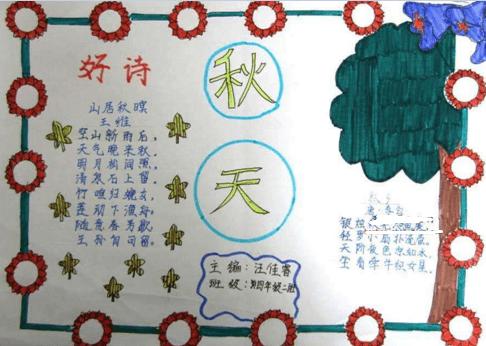 好诗
山居秋暝
王维
空山新雨后，
天气晚来秋。
明月松间照，
清泉石上留
竹喧归浣女，
莲动下渔舟，
随意春芳歇
王孙自可留。
秋
天
主编：汪佳睿
班级：四年级二班
银烛
轻罗小扇扑流萤。
天阶夜色凉如水，
坐看牵牛织女星。